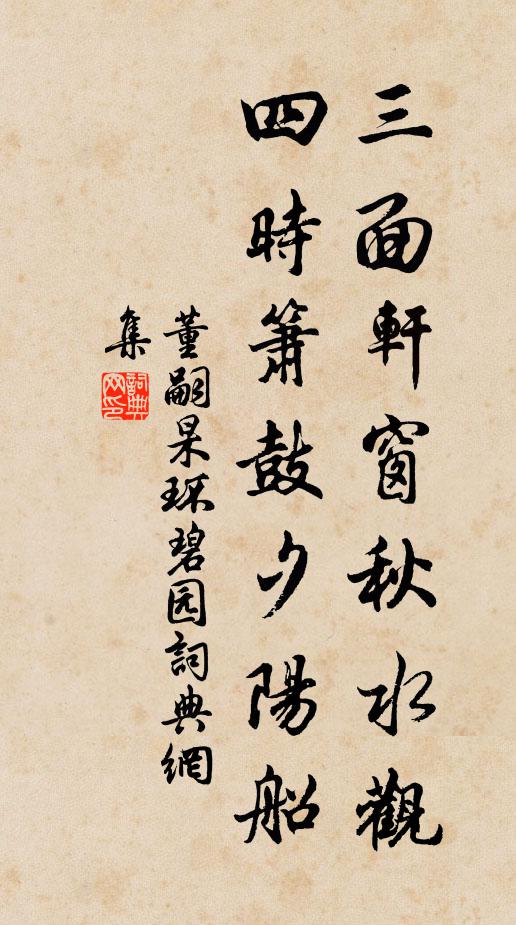 三面軒窗秋水觀
四時簫鼓夕陽船
董嗣杲环碧园詞典網
集
詞典网印